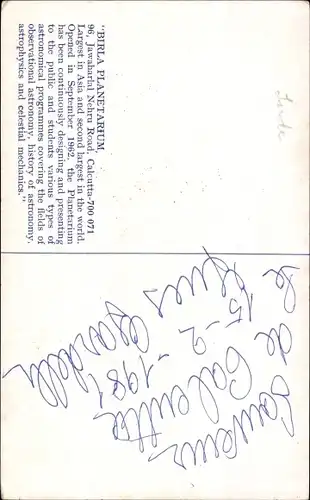 "BIRLA PLANETARIUM,
96, Jawaharlal Nehru Road, Calcutta-700 071
Largest in Asia and second largest in the world.
Opened in September 1962, the Planetarium
has been continuously designing and presenting
to the public and students various types of
astronomical programmes covering the fields of
observational astronomy, history of astronomy,
astrophysics and celestial mechanics."
Souvenir
de Calcutta
le 15-2-1981